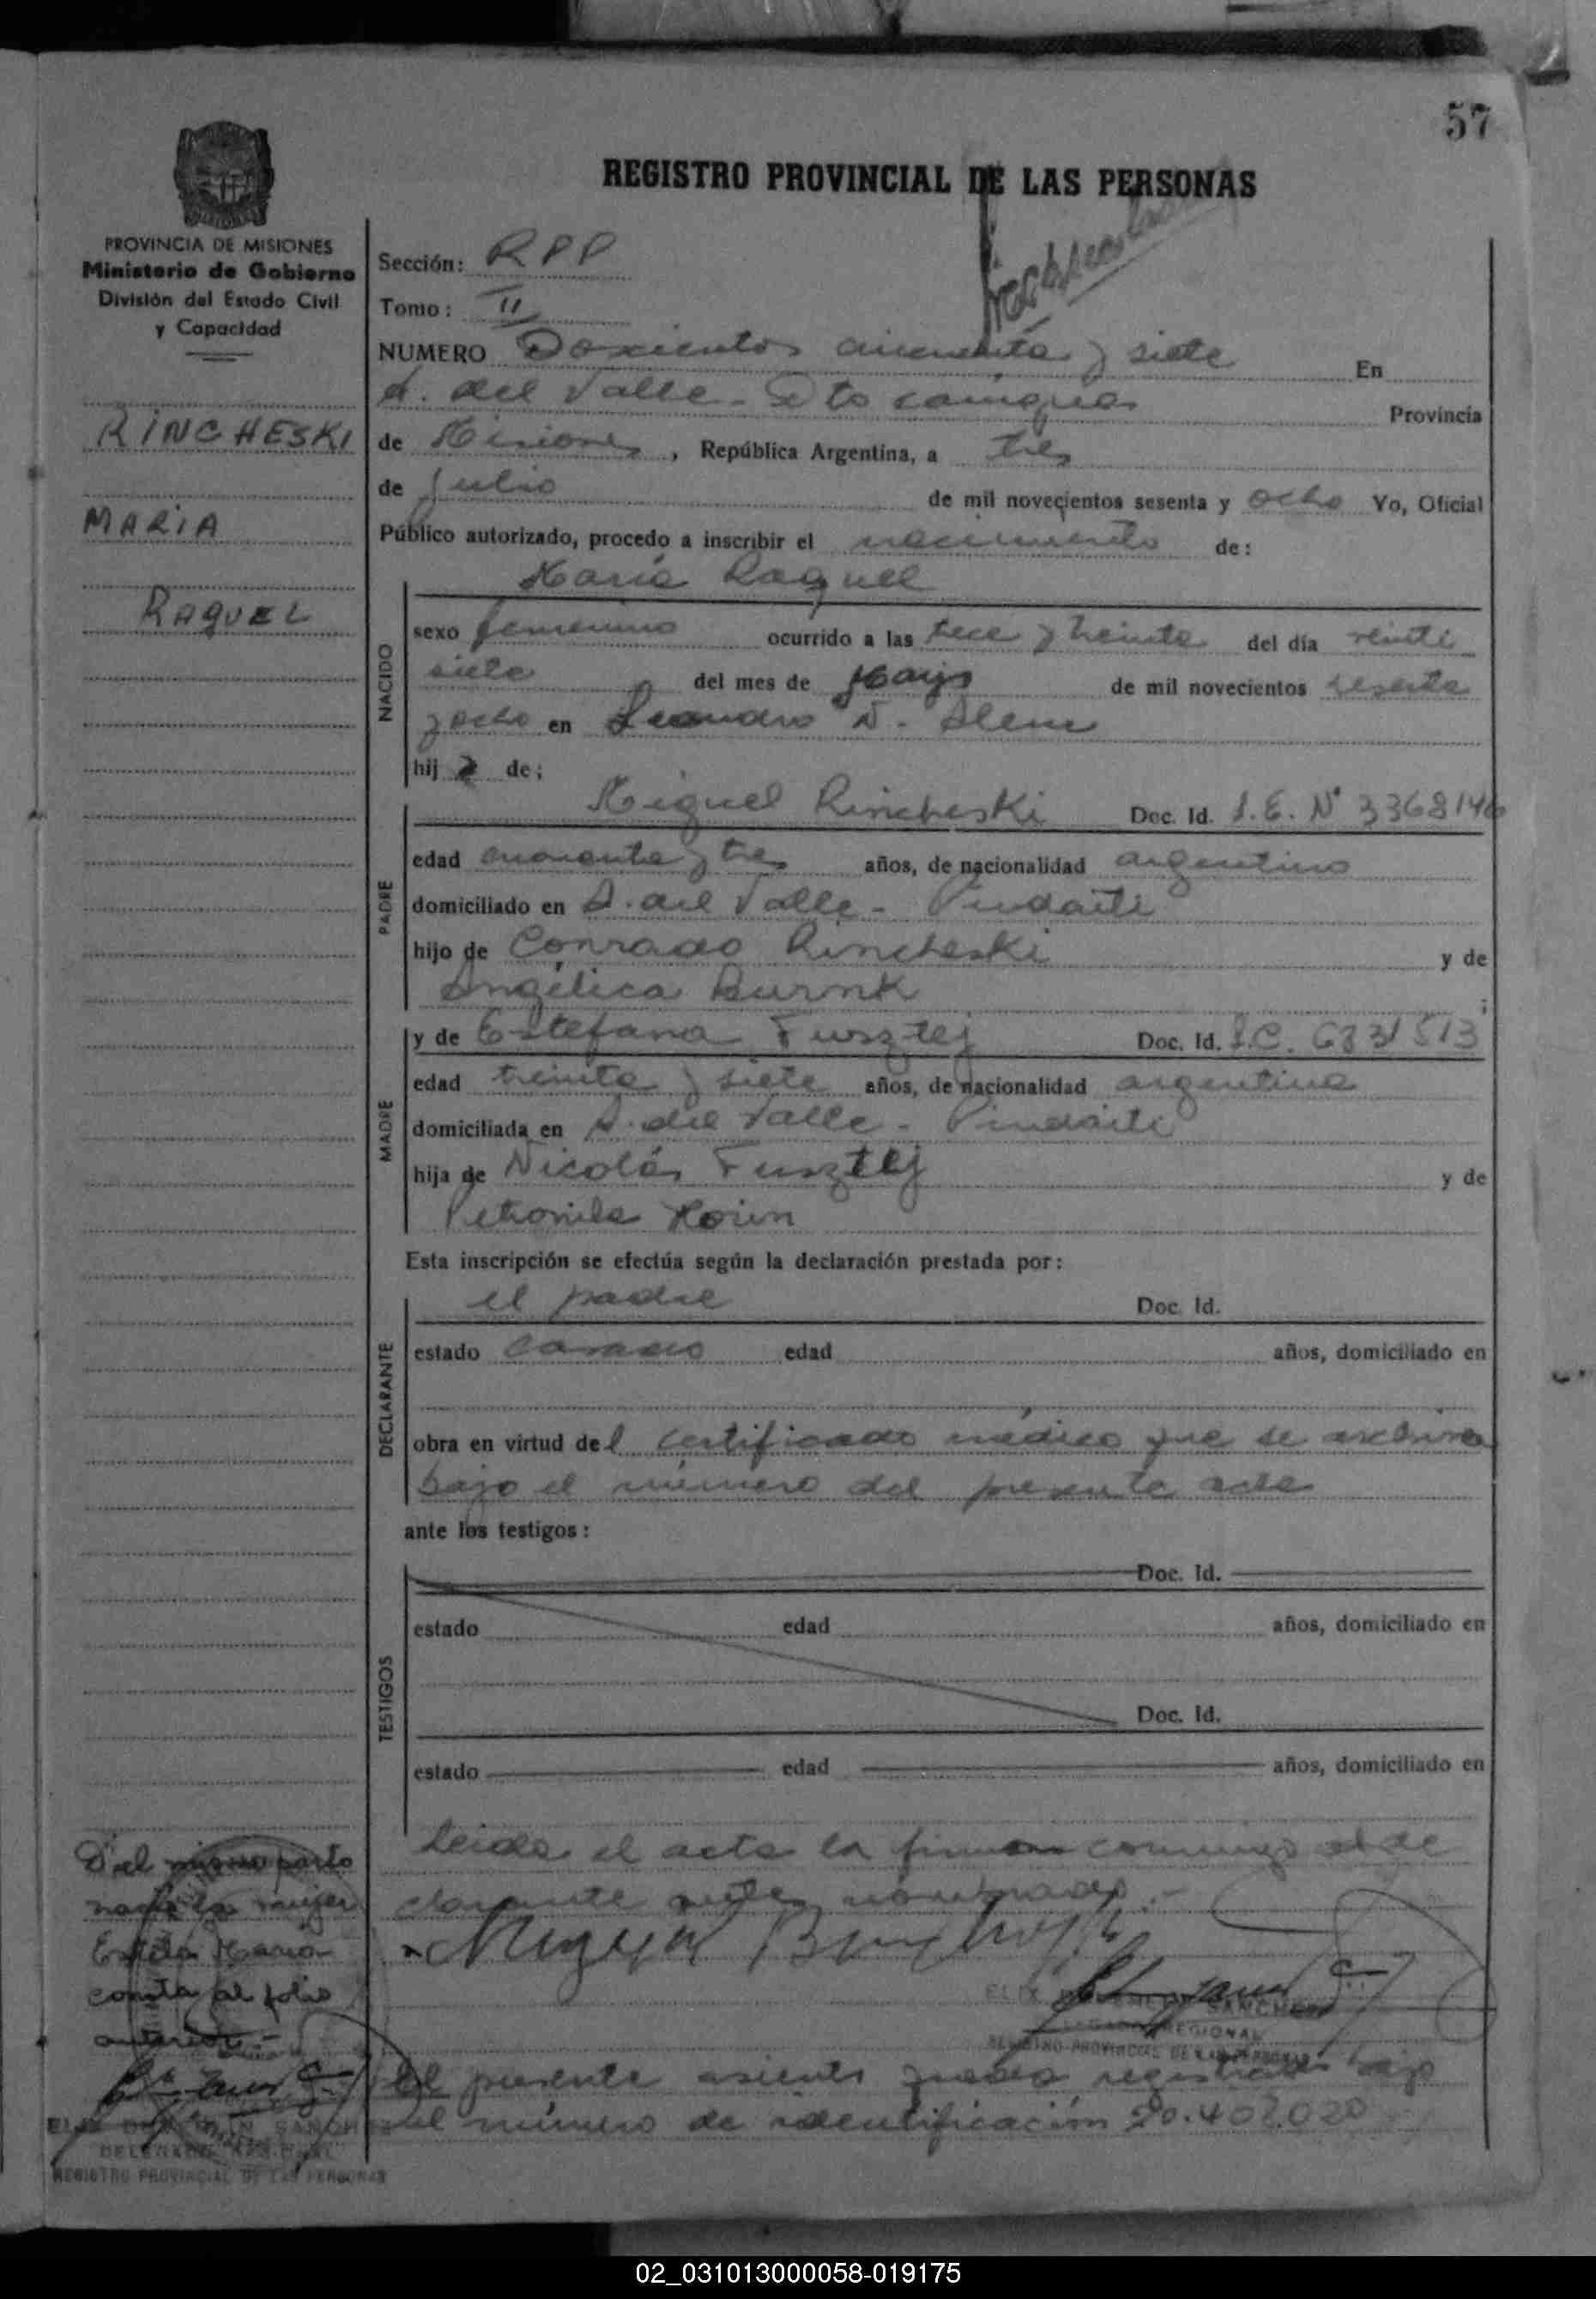 57
REGISTRO PROVINCIAL DE LAS PERSONAS
PROVINCIA DE MISIONES
Ministerio de Gobierno
División del Estado Civil
y Capacidad
RINCHESKI
MARIA
RAQUEL
Sección: RPP
Tomo: II
NUMERO Doscientos cincuenta y siete En
A. del Valle - Dto Cainguas Provincia
de Misiones, República Argentina, a tres
de Julio de mil novecientos sesenta y ocho Yo, Oficial
Público autorizado, procedo a inscribir el nacimiento de:
María Raquel
NACIDO
sexo femenino ocurrido a las trece y treinta del día veinti
siete del mes de Mayo de mil novecientos sesenta
y ocho en Leandro N. Alem
hij a de:
Miguel Rincheski Doc. Id. L.E. Nº 3368146
PADRE
edad cuarenta y tres años, de nacionalidad argentino
domiciliado en A. del Valle - Pindaiti
hijo de Conrado Rincheski y de
Angélica Burnk
y de Estefana Fusztej Doc. Id. L.C. 6831513
MADRE
edad treinta y siete años, de nacionalidad argentina
domiciliada en A. del Valle - Pindaiti
hija de Nicolás Fusztej y de
Petronila
Esta inscripción se efectúa según la declaración prestada por:
el padre Doc. Id.
DECLARANTE
estado casado edad años, domiciliado en
obra en virtud del certificado médico que se archiva
bajo el número del presente acta
ante los testigos:
Doc. Id.
TESTIGOS
estado edad años, domiciliado en
Doc. Id.
estado edad años, domiciliado en
Leida el acta la firma conmigo el de
clarante antes nombrado.-
Del mismo parto
nació la mujer
María
consta al folio
anterior.-
SANCHEZ
REGIONAL
REGISTRO PROVINCIAL DE LAS PERSONAS
El presente asiento queda registrado bajo
el número de identificación 20.402.020
SANCHEZ
DELEGADO REGIONAL
REGISTRO PROVINCIAL DE LAS PERSONAS
02_031013000058-019175